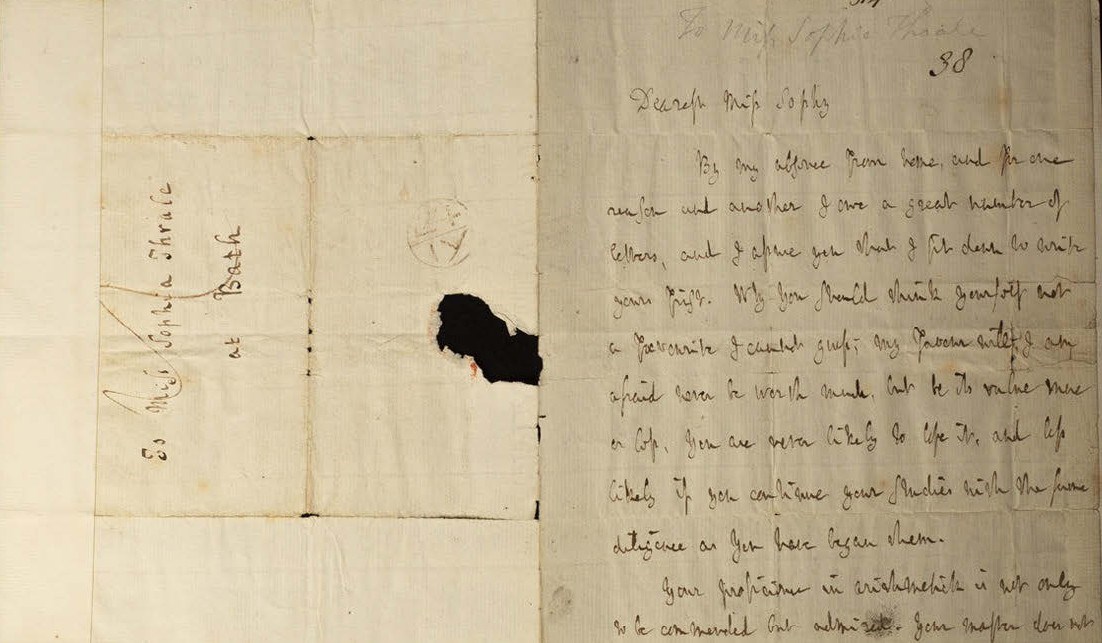 To Miss Sophia Thrale
at Bath
To Miss Sophia Thrale
38
Dearest Miss Sophy
By my absence from home, and for one
reason and another I owe a great number of
letters, and I assure you that I sit down to write
yours first. Why you should think yourself not
a favourite I cannot guess; my favour will, I am
afraid never be worth much, but be its value more
or less, you are never likely to lose it, and less
likely if you continue your studies with the same
diligence as you have began them.
Your proficience in arithmetick is not only
to be commended but admired. Your master does not